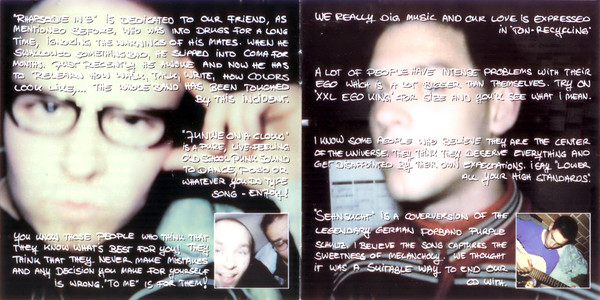 "RHAPSODIE IN E" IS DEDICATED TO OUR FRIEND, AS
MENTIONED BEFORE, WHO WAS INTO DRUGS FOR A LONG
TIME, IGNORING THE WARNINGS OF HIS MATES. WHEN HE
SWALLOWED SOMETHING BAD, HE SLIPPED INTO COMA FOR
MONTHS. JUST RECENTLY HE AWOKE AND NOW HE HAS
TO RELEARN HOW WALK, TALK, WRITE, HOW COLORS
LOOK LIKE.... THE WHOLE BAND HAS BEEN TOUCHED
BY THIS INCIDENT.
"JUNGLE ON A CLOUD"
IS A PURE, LIVE-FEELING
OLDSCHOOL PUNK SOUND
TO DANCE, POGO OR
WHATEVER YOU DO TYPE
SONG - ENJOY!
YOU KNOW THOSE PEOPLE WHO THINK THAT
THEY KNOW WHAT'S BEST FOR YOU! THEY
THINK THAT THEY NEVER MAKE MISTAKES
AND ANY DECISION YOU MAKE FOR YOURSELF
IS WRONG. "TO ME" IS FOR THEM!
WE REALLY DIG MUSIC AND OUR LOVE IS EXPRESSED
IN "TON-RECYCLING"
A LOT OF PEOPLE HAVE INTENSE PROBLEMS WITH THEIR
EGO WHICH IS A LOT BIGGER THAN THEMSELVES. TRY ON
"XXL EGO KING" FOR SIZE AND YOU'LL SEE WHAT I MEAN.
I KNOW SOME PEOPLE WHO BELIEVE THEY ARE THE CENTER
OF THE UNIVERSE. THEY THINK THEY DESERVE EVERYTHING AND
GET DISAPPOINTED BY THEIR OWN EXPECTATIONS. I SAY, "LOWER
ALL YOUR HIGH STANDARDS".
"SEHNSUCHT" IS A COVERVERSION OF THE
LEGENDARY GERMAN POPBAND PURPLE
SCHULZ. I BELIEVE THE SONG CAPTURES THE
SWEETNESS OF MELANCHOLY. WE THOUGHT
IT WAS A SUITABLE WAY TO END OUR
CD WITH.